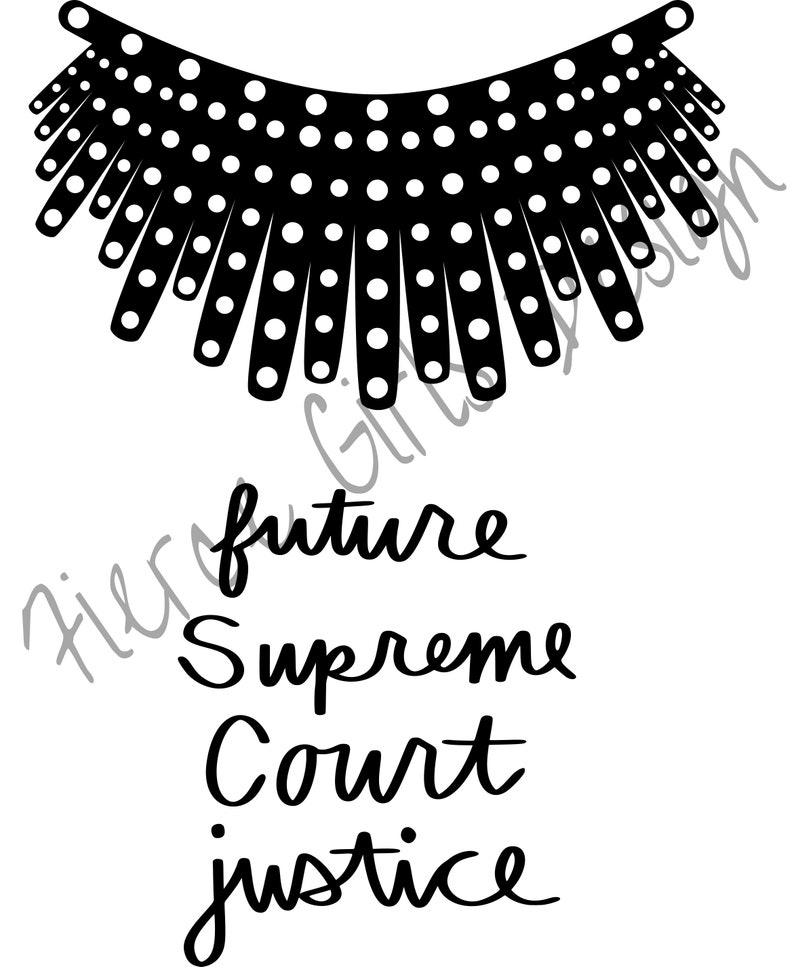 Fierce Girls Design
future
Supreme
Court
justice